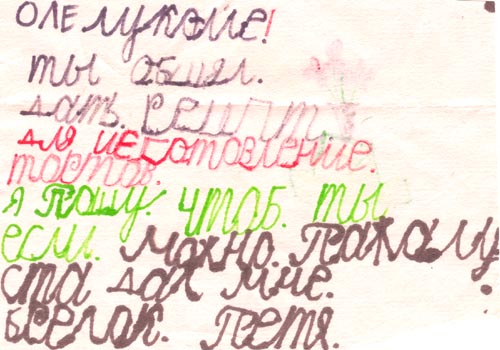 ОЛЕ ЛУКОИЕ!
ТЫ ОБЩЯЛ.
ДАТЬ. РЕЦЕПТ.
ДЛЯ ИЕГОТОВЛЕНИЕ.
ТОСТОВ.
Я ПОШУ. ЧТОБ. ТЫ.
ЕСЛИ. МОЖНО. ПАЖАЛУ
СТА ДАЛ МНЕ.
БРЕЛОК. ПЕТЯ.